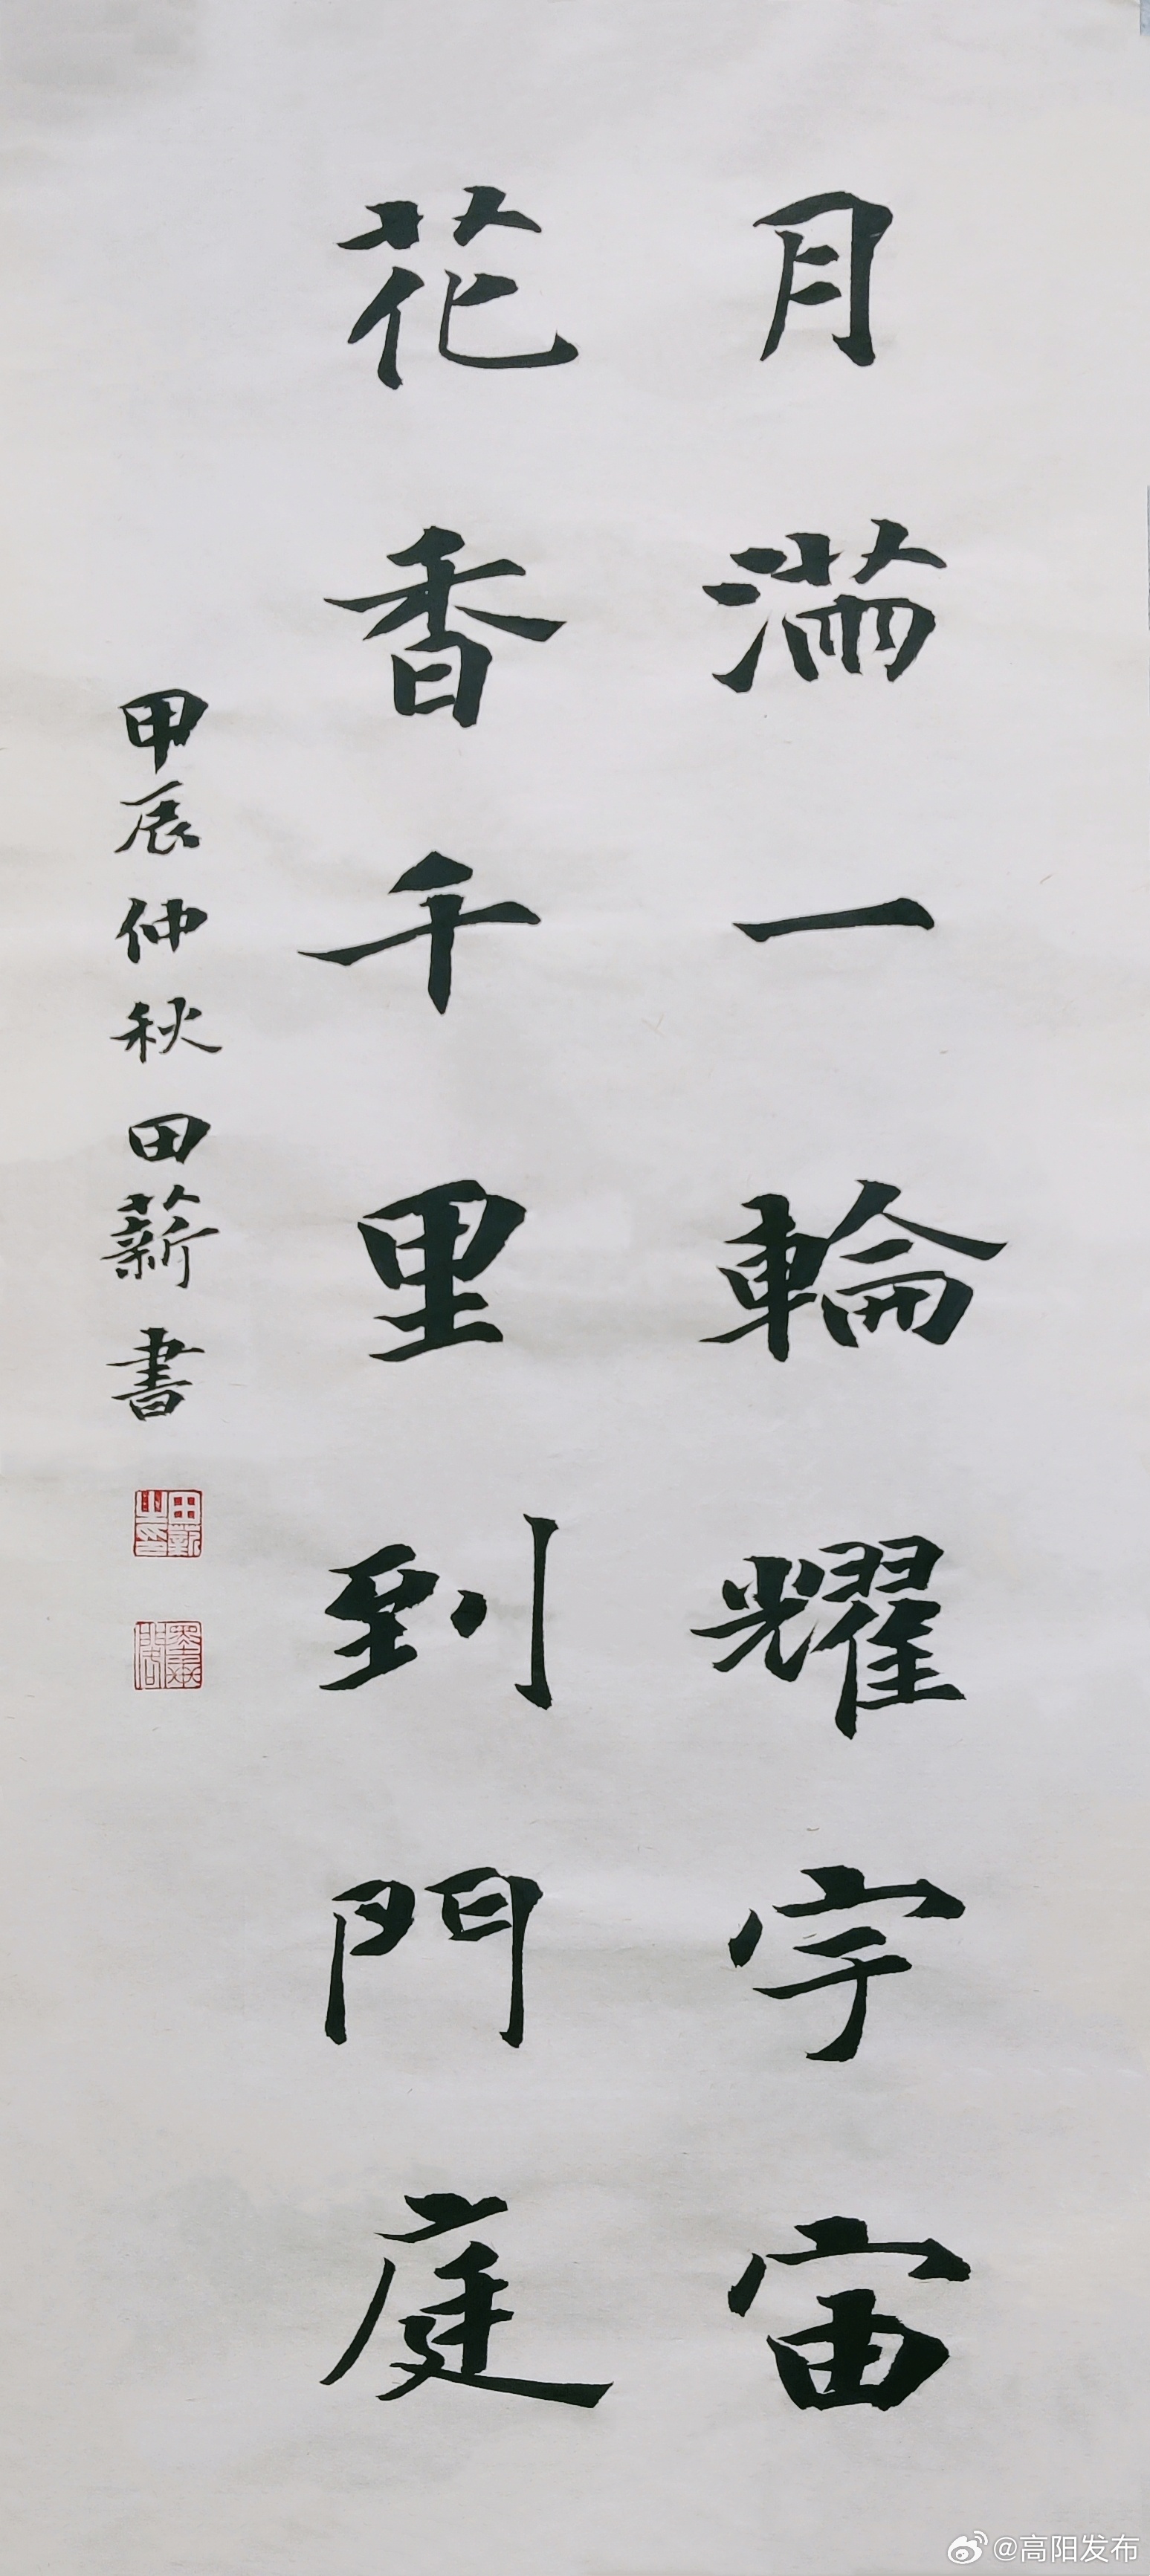 月滿一輪耀宇宙
花香千里到門庭
甲辰仲秋田薪書
@高阳发布